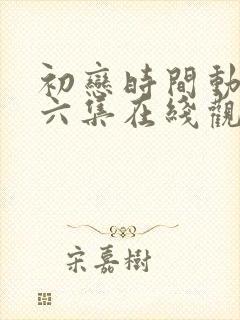 初戀時間動
六集在綫觀
宋嘉樹